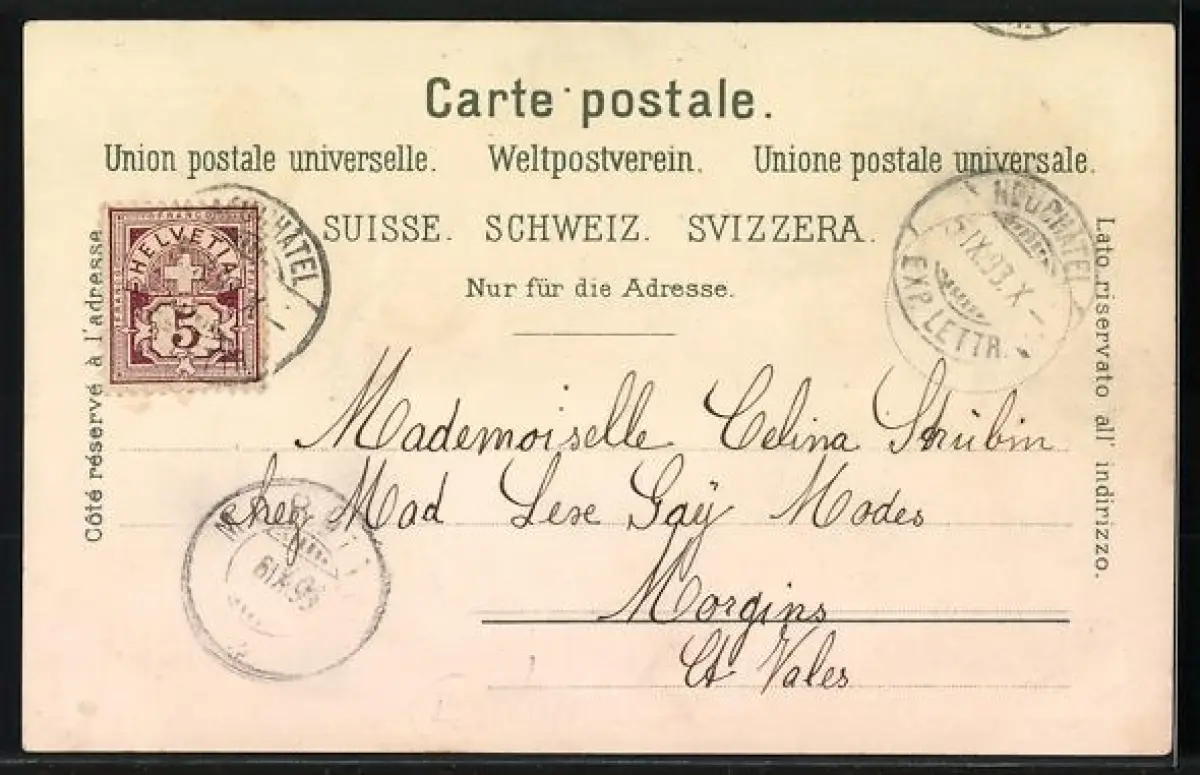 Carte postale.
Union postale universelle. Weltpostverein. Unione postale universale.
SUISSE. SCHWEIZ. SVIZZERA.
Nur für die Adresse.
Côté réservé à l'adresse
Lato riservato all' indirizzo.
FRANCO
HELVETIA
5
NEUCHÂTEL
EXP. LETTR.
Mademoiselle Celina Strübin
chez Mad Gaÿ Modes
Morgins
Ct Vales